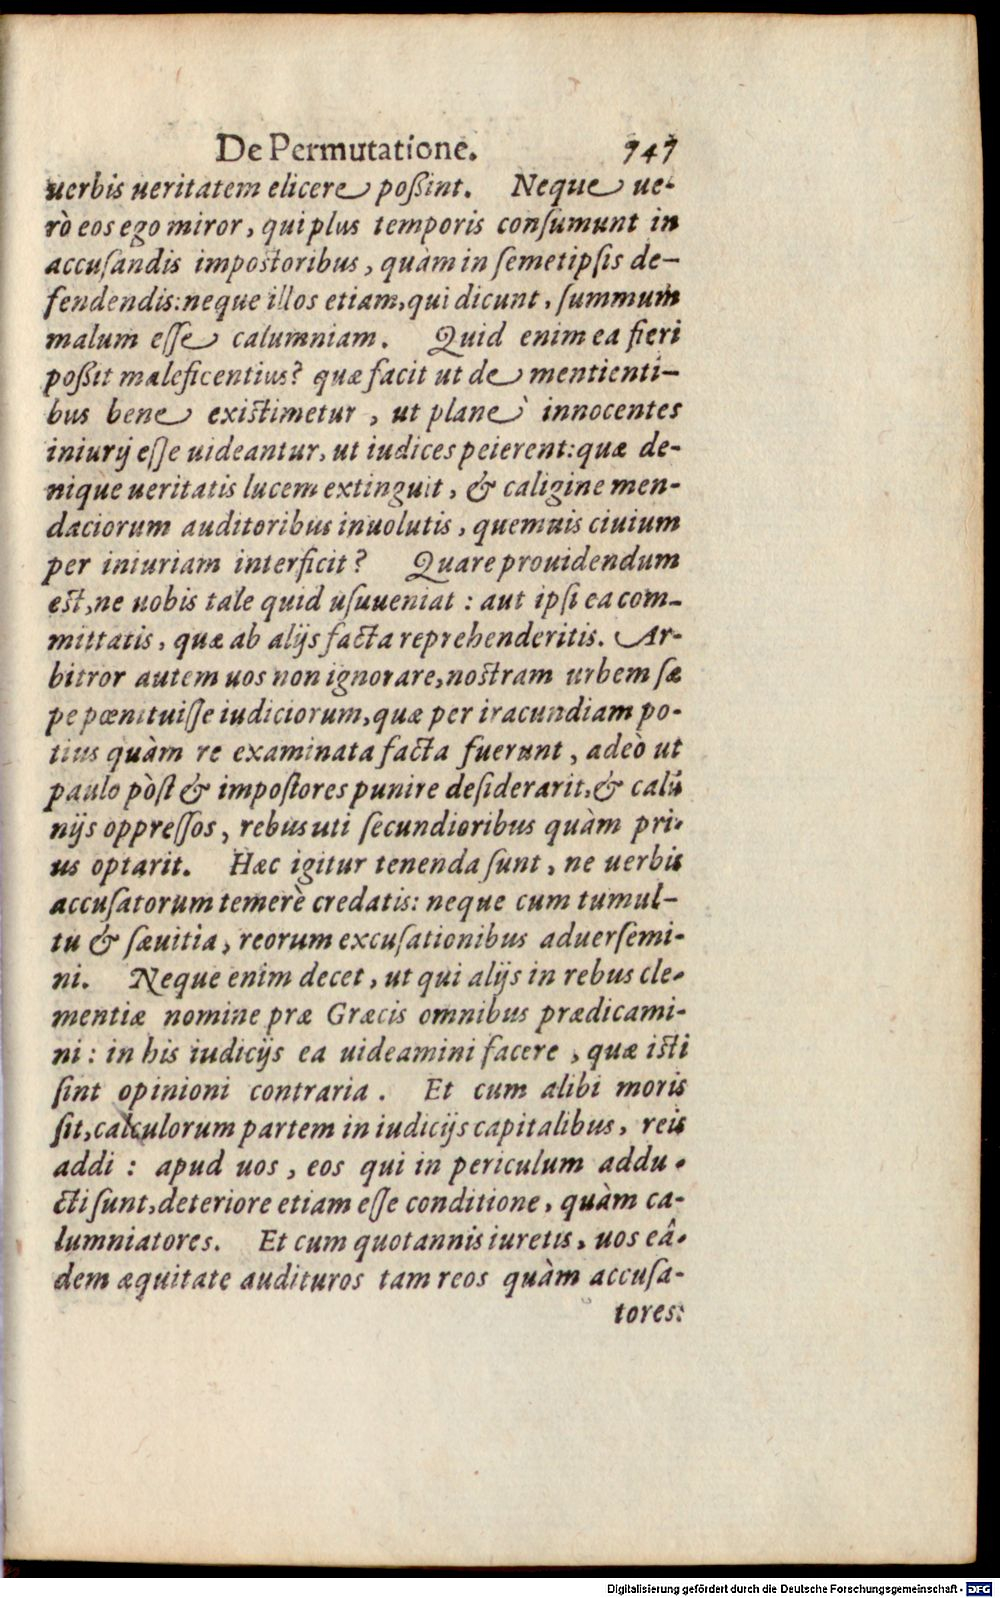 De Permutatione. 747
uerbis ueritatem elicere poßint. Neque ue-
rò eos ego miror, qui plus temporis conſumunt in
accuſandis impostoribus, quàm in ſemetipſis de-
fendendis: neque illos etiam, qui dicunt, ſummum
malum eſſe calumniam. Quid enim ea fieri
poßit maleficentius? quæ facit ut de mentienti-
bus bene existimetur, ut planè innocentes
iniurij eſſe uideantur, ut iudices peierent: quæ de-
nique ueritatis lucem extinguit, & caligine men-
daciorum auditoribus inuolutis, quemuis ciuium
per iniuriam interficit? Quare prouidendum
est, ne uobis tale quid uſuueniat: aut ipſi ea com-
mittatis, quæ ab alijs facta reprehenderitis. Ar-
bitror autem uos non ignorare, nostram urbem ſæ
pe pœnituiſſe iudiciorum, quæ per iracundiam po-
tius quàm re examinata facta fuerunt, adeò ut
paulo pòſt & impoſtores punire deſiderarit, & calũ
nijs oppreſſos, rebus uti ſecundioribus quàm pri-
us optarit. Hæc igitur tenenda ſunt, ne uerbis
accuſatorum temerè credatis: neque cum tumul-
tu & ſæuitia, reorum excuſationibus aduerſemi-
ni. Neque enim decet, ut qui alijs in rebus cle-
mentiæ nomine præ Græcis omnibus prædicami-
ni: in his iudicijs ea uideamini facere, quæ isti
ſint opinioni contraria. Et cum alibi moris
ſit, calculorum partem in iudicijs capitalibus, reis
addi: apud uos, eos qui in periculum addu-
cti ſunt, deteriore etiam eſſe conditione, quàm ca-
lumniatores. Et cum quotannis iuretis, uos eâ-
dem æquitate audituros tam reos quàm accuſa-
tores:
Digitalisierung gefördert durch die Deutsche Forschungsgemeinschaft - DFG